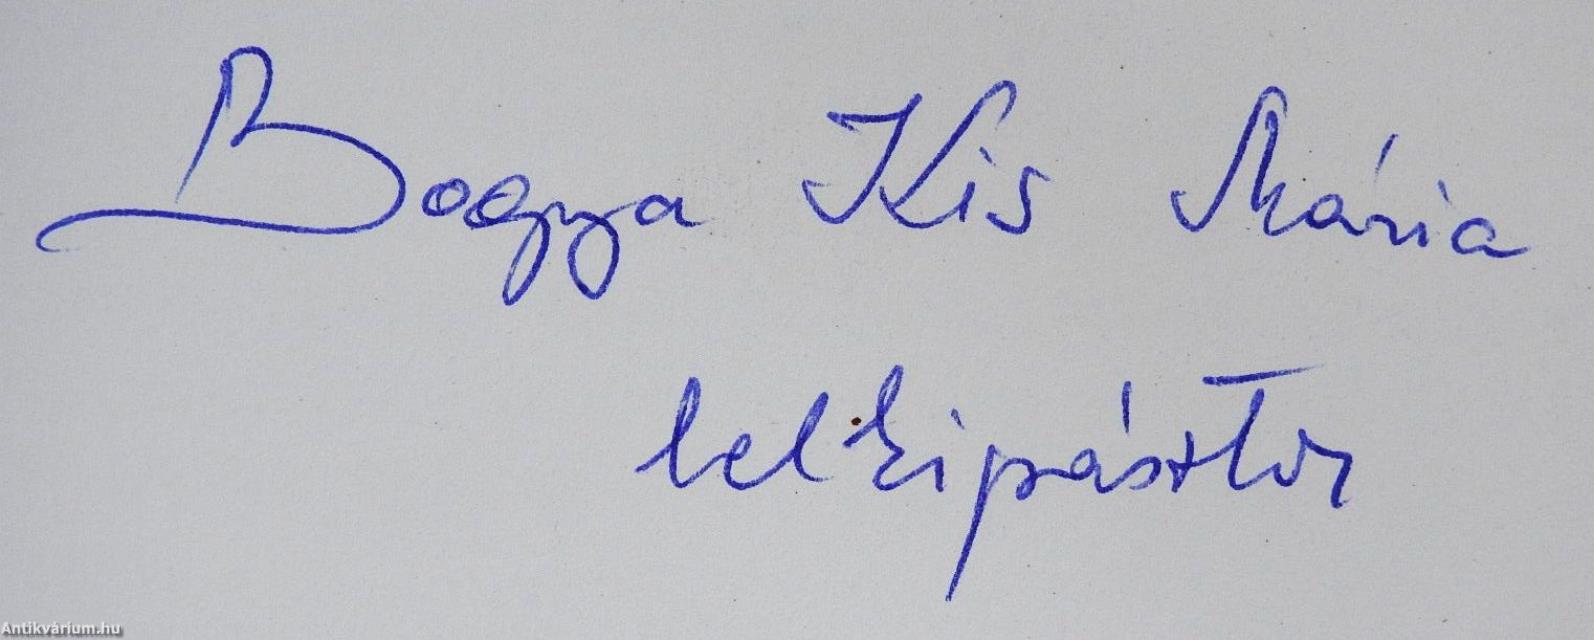 Bogya Kis Mária
lelkipásztor
Antikvárium.hu